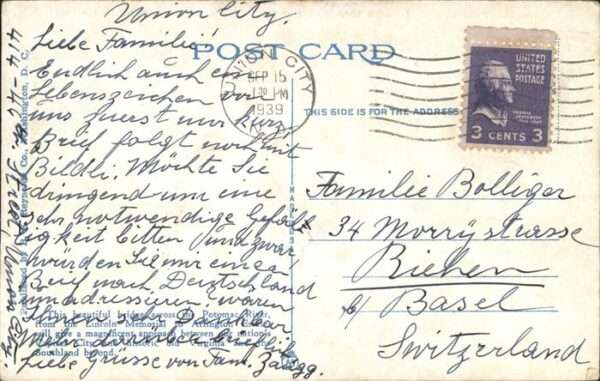 Union City.
Liebe Familie!
Endlich auch ein
Lebenszeichen von
uns zuerst nur kurz
Brief folgt noch mit
Bildli. Möchte Sie
dringend um eine
sehr notwendige Gefäll
igkeit bitten und zwar
würden Sie mir einen
Brief nach Deutschland
umadressieren, wären
Ihnen sehr dankbar
Mehr darüber brieflich
Liebe Grüsse von Fam. Zaugg.
414-
Street, Union City.
POST CARD
THIS SIDE IS FOR THE ADDRESS
UNION CITY
SEP 15
PM
1939
N.J.
UNITED
STATES
POSTAGE
3 CENTS 3
Familie Bolliger
34 Morrystrasse
Riehen
b/ Basel
Switzerland
Washington, D. C.
This beautiful bridge across the Potomac River,
from the Lincoln Memorial to Arlington
will give a magnificent approach between the nation's
Southland beyond